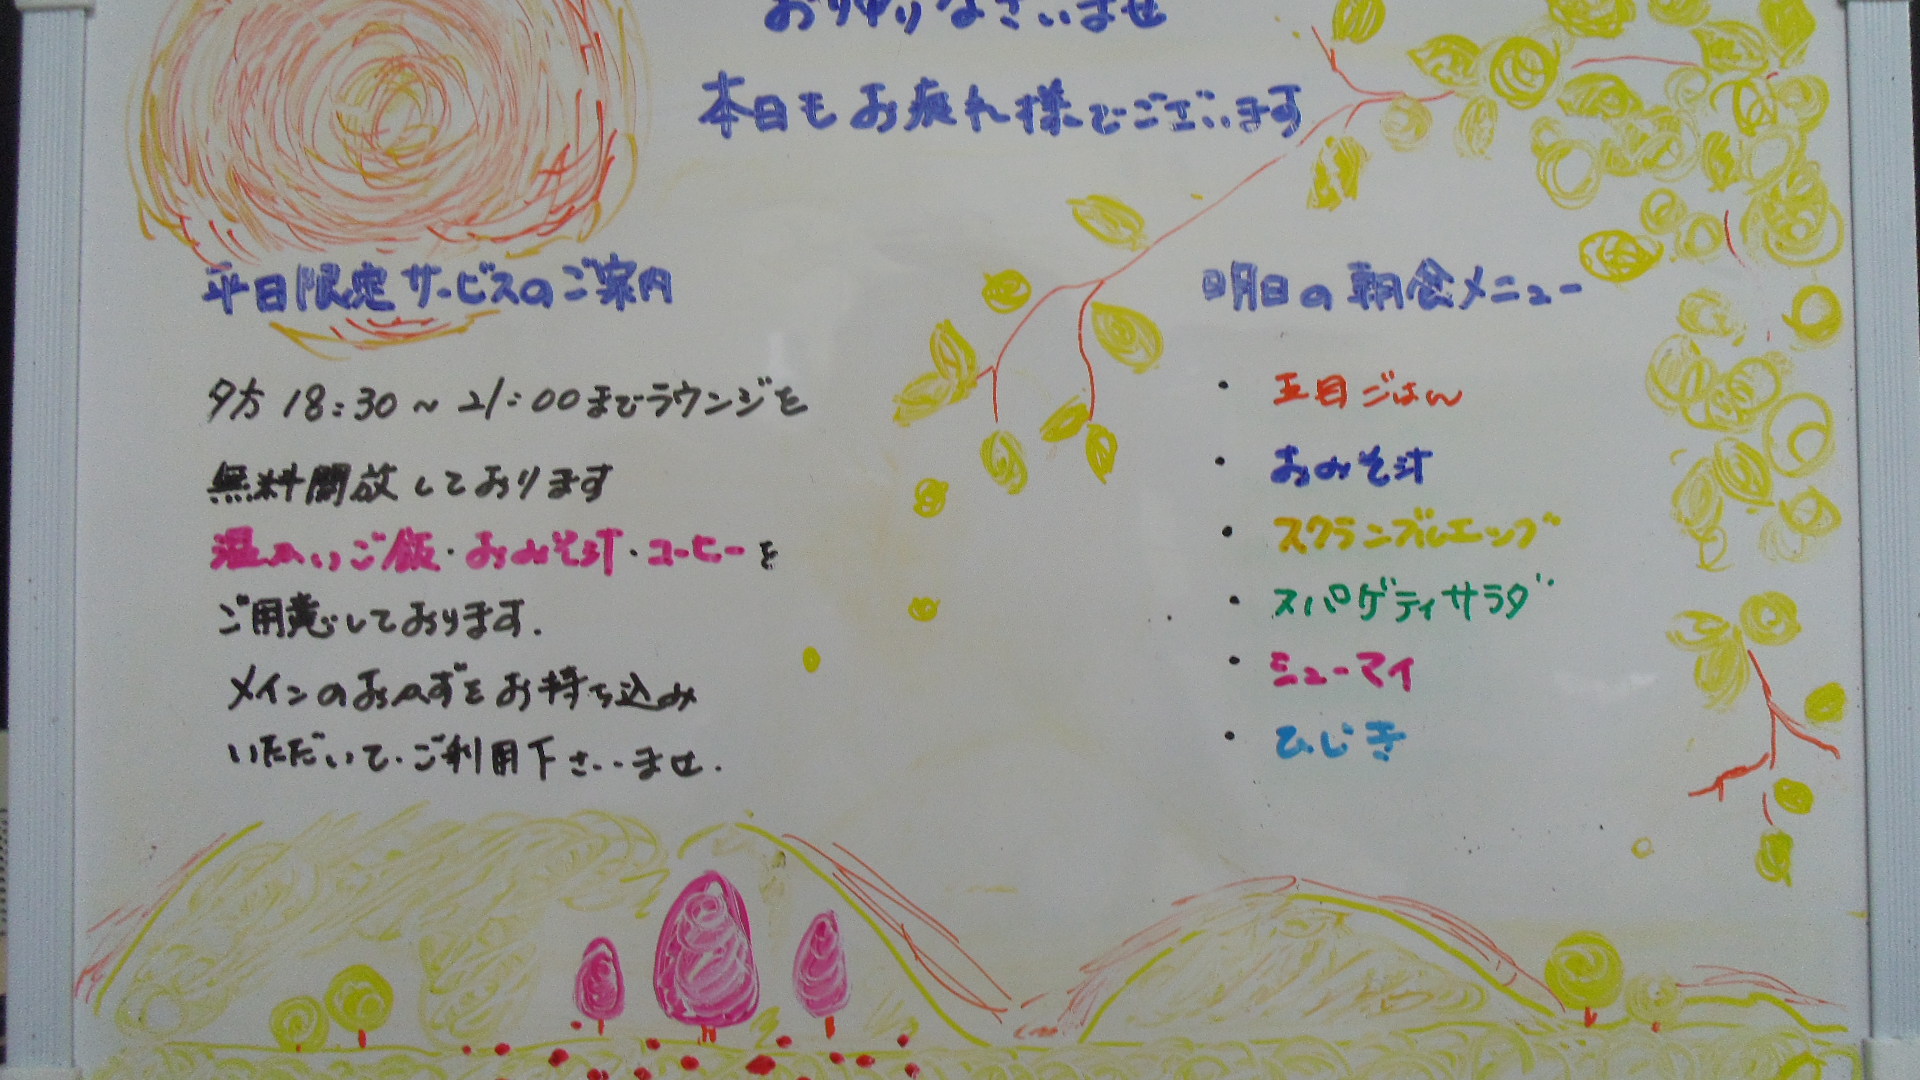 なさいませ
本日もお疲れ様でございます
平日限定サービスのご案内
夕方 18:30～21:00までラウンジを
無料開放しております
温かいご飯・おみそ汁・コーヒーを
ご用意しております.
メインのおかずをお持ち込み
いただいて、ご利用下さいませ.
明日の朝食メニュー
・五目ごはん
・おみそ汁
・スクランブルエッグ
・スパゲティサラダ
・シューマイ
・ひじき